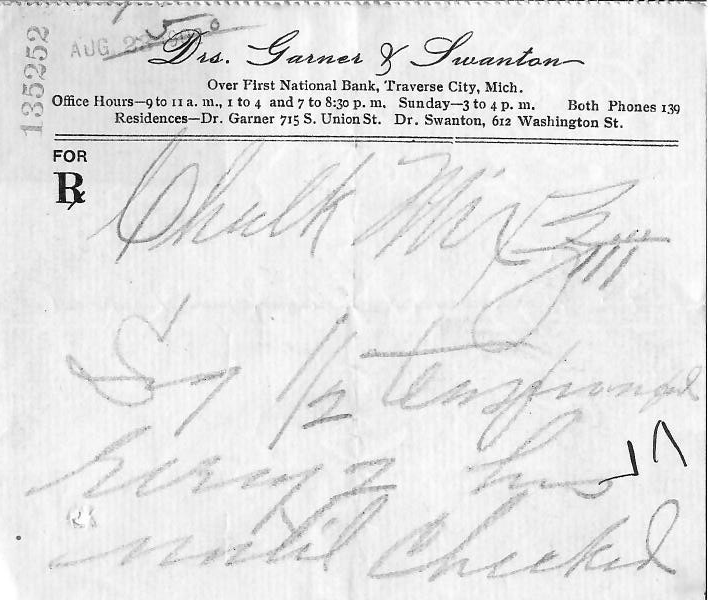 135252
AUG 23
Drs. Garner & Swanton
Over First National Bank, Traverse City, Mich.
Office Hours—9 to 11 a. m., 1 to 4 and 7 to 8:30 p. m. Sunday—3 to 4 p. m. Both Phones 139
Residences—Dr. Garner 715 S. Union St. Dr. Swanton, 612 Washington St.
FOR
℞
Chalk Mix ℥iii
Sig 1/2 teaspoonful
every 2 hrs
until checked